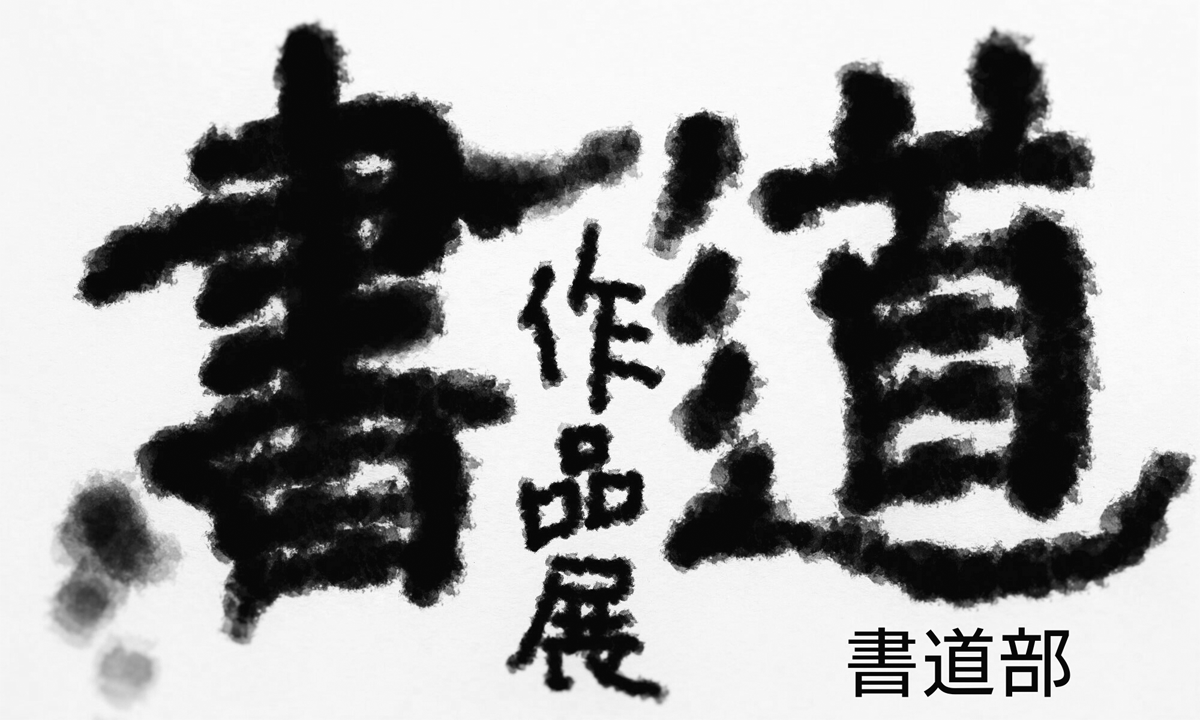 書道
作品展
書道部